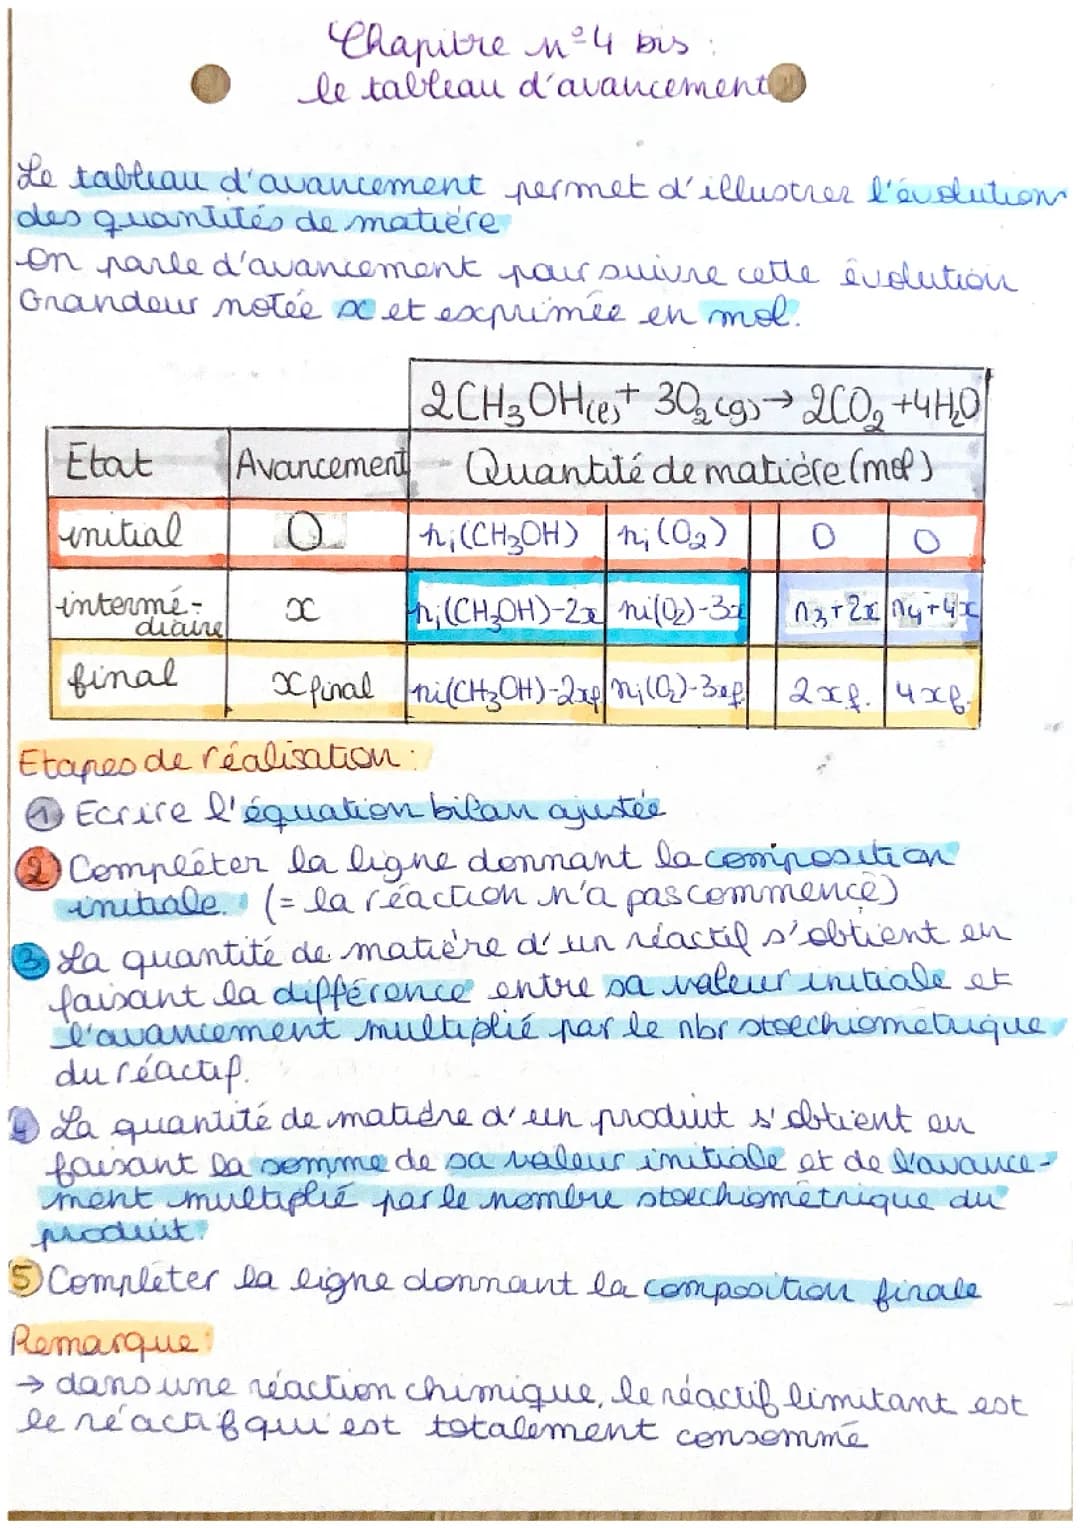 Chapitre n°4 bis :
le tableau d'avancement
Le tableau d'avancement permet d'illustrer l'évolution
des quantités de matière
On parle d'avancement pour suivre cette évolution
Grandeur notée x et exprimée en mol.
2CH₃OH(l) + 3O₂(g) → 2CO₂ + 4H₂O
Etat Avancement Quantité de matière (mol)
initial 0 nᵢ(CH₃OH) nᵢ(O₂) 0 0
intermé- x nᵢ(CH₃OH)-2x ni(O₂)-3x n₃+2x n₄+4x
diaire
final x final ni(CH₃OH)-2xf nᵢ(O₂)-3xf 2xf. 4xf.
Etapes de réalisation :
1 Ecrire l'équation bilan ajustée
2 Compléter la ligne donnant la composition
initiale. (= la réaction n'a pas commencé)
3 La quantité de matière d'un réactif s'obtient en
faisant la différence entre sa valeur initiale et
l'avancement multiplié par le nbr stoechiométrique
du réactif.
4 La quantité de matière d'un produit s'obtient en
faisant la somme de sa valeur initiale et de l'avance-
ment multiplié par le nombre stoechiométrique du
produit.
5 Compléter la ligne donnant la composition finale
Remarque :
→ dans une réaction chimique, le réactif limitant est
le réactif qui est totalement consommé